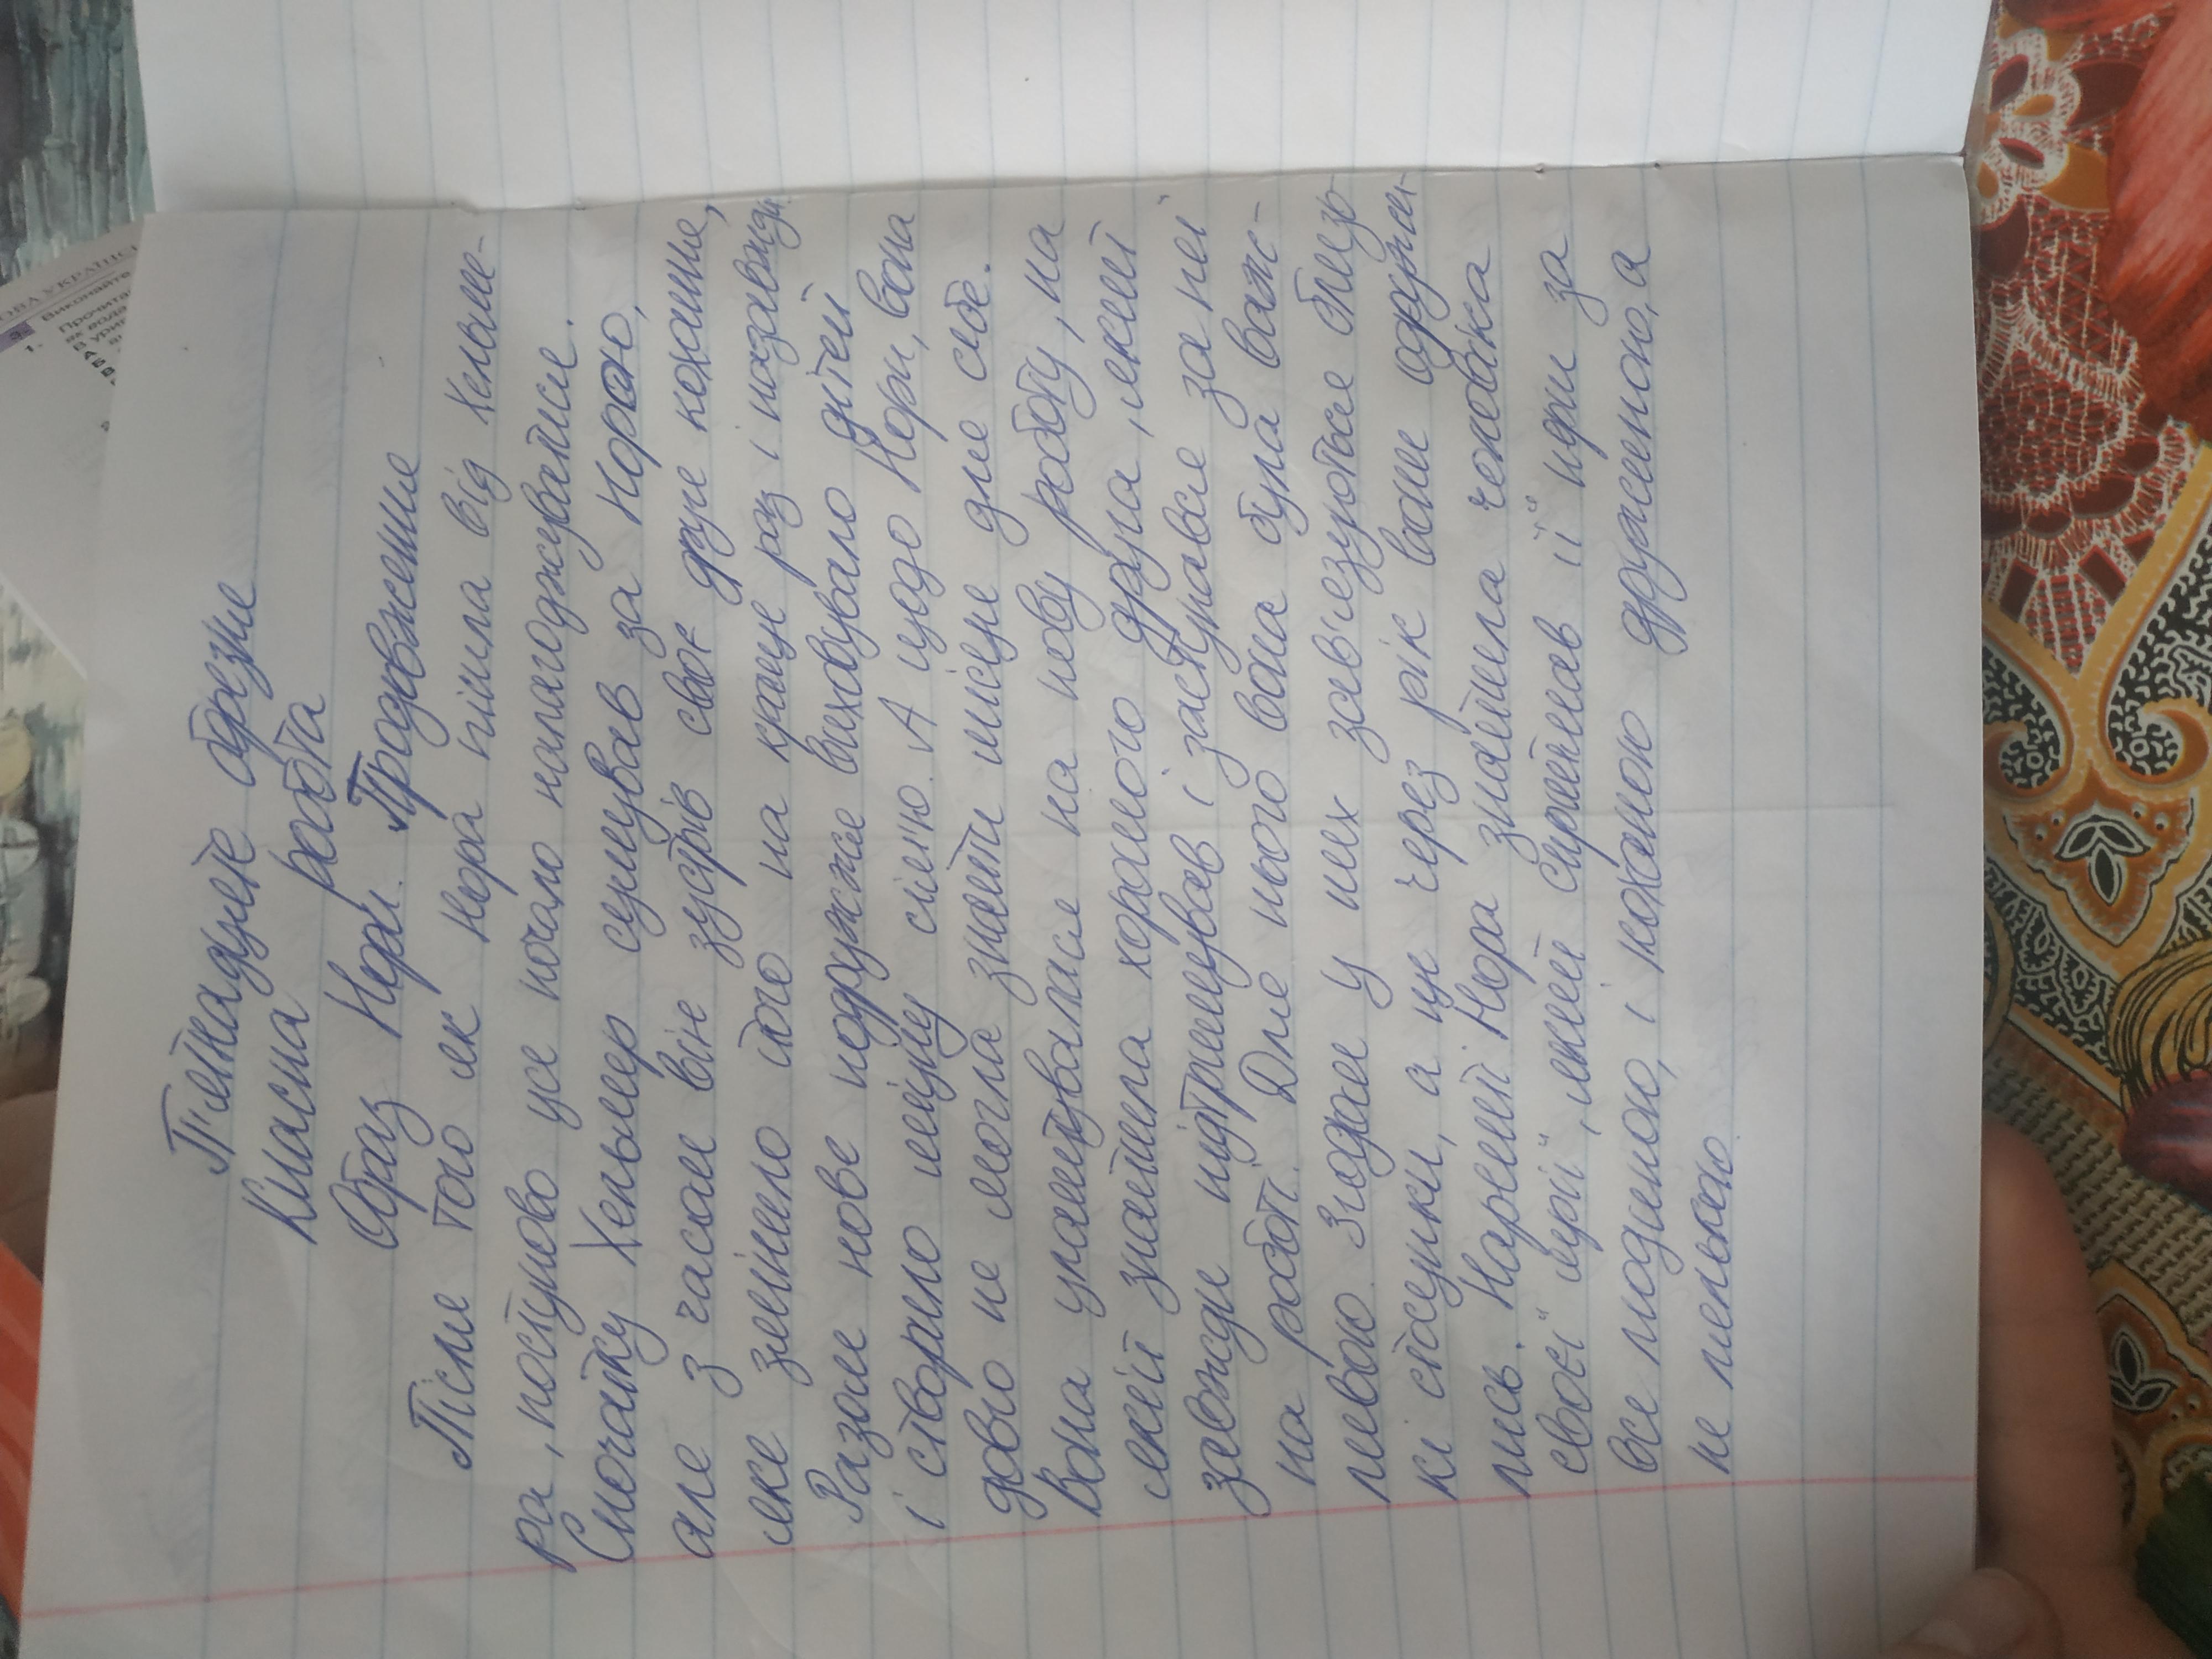 П'ятнадцяте березня
Класна робота
Образ Нори. Продовження
Після того як Нора пішла від Хельме-
ра, поступово усе почало налагоджуватися.
Спочатку Хельмер сумував за Норою,
але з часом він зустрів своє друге кохання,
яке змінило його на краще раз і назавжди.
Разом нове подружжя виховувало дітей
і створило міцну сім'ю. А щодо Нори, вона
довго не могла знайти місце для себе.
Вона улаштувалася на нову роботу, на
якій знайшла хорошого друга, який
завжди підтримував і заступався за неї
на роботі. Для нього вона була важ-
ливою. Згодом у них зав'язуються близь-
кі стосунки, а ще через рік вони одружи-
лись. Нарешті Нора знайшла чоловіка
своєї мрії, який сприймав її перш за
все людиною, і коханою дружиною, а
не лялькою.
ОВА УКРАЇНС
9.
Виконайте
1.
Прочита
як вода
В урив
А
Б